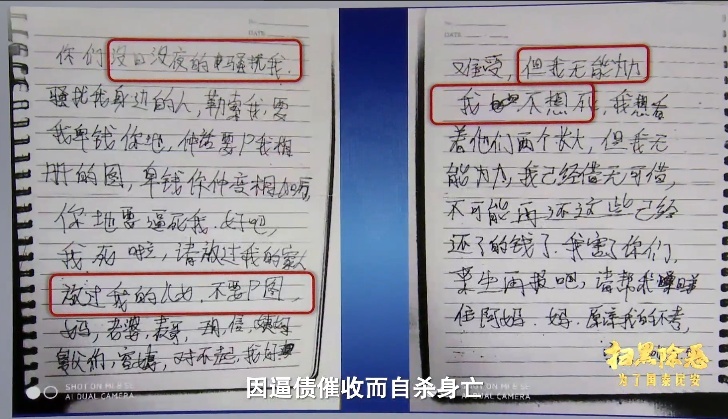 你们没日没夜的电骚扰我.
骚扰我身边的人,勒索我,要
我卑钱你地,仲话要P我相
册的图,卑钱你仲变相加
你地要逼死我.好吧,
我死啦,请放过我的家人
放过我的儿女,不要P图,
妈,老婆,
对不起,我好
难受,但我无能为力
我不想死,我想看
着他们两个长大,但我无
能为力,我已经借无可借,
不可能再还这些已经
还了的钱了.我害了你们,
来生再报吧,请帮我
住阿妈.妈.原谅我的不孝,
扫黑除恶
为了国泰民安
SHOT ON MI 8 SE
AI DUAL CAMERA
SHOT ON MI 8 SE
AI DUAL CAMERA
因逼债催收而自杀身亡